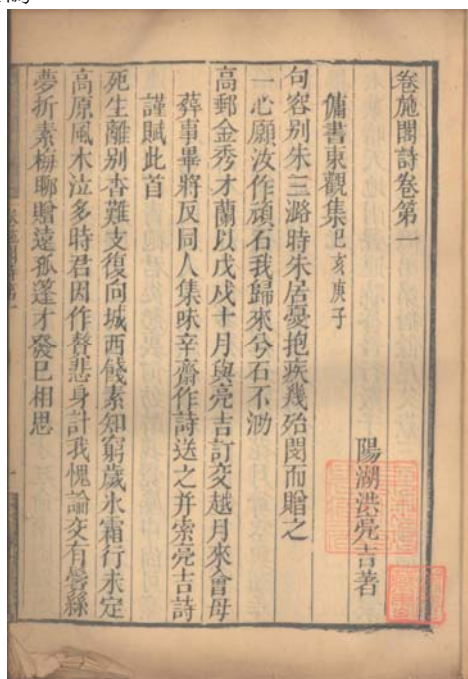 卷施閣詩卷第一
陽湖洪亮吉著
傭書東觀集己亥庚子
句容别朱三潞時朱居憂抱疾幾殆閔而贈之
一心願汝作頑石我歸來兮石不泐
高郵金秀才蘭以戊戌十月與亮吉訂交越月來會母
葬事畢將反同人集味辛齋作詩送之并索亮吉詩
謹賦此首
死生離别杳難支復向城西餞素知窮歲氷霜行未定
高原風木泣多時君因作贅悲身計我愧論交有鬢絲
夢折素梅聊贈遠孤蓬才發已相思